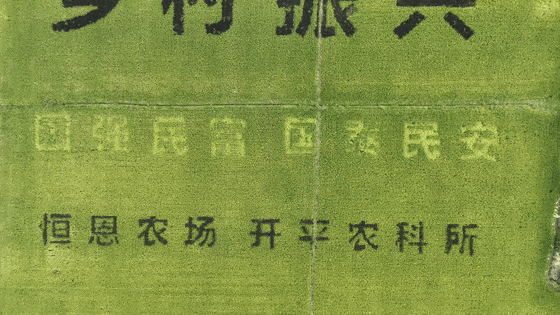 乡村振兴
国强民富 国泰民安
恒恩农场 开平农科所